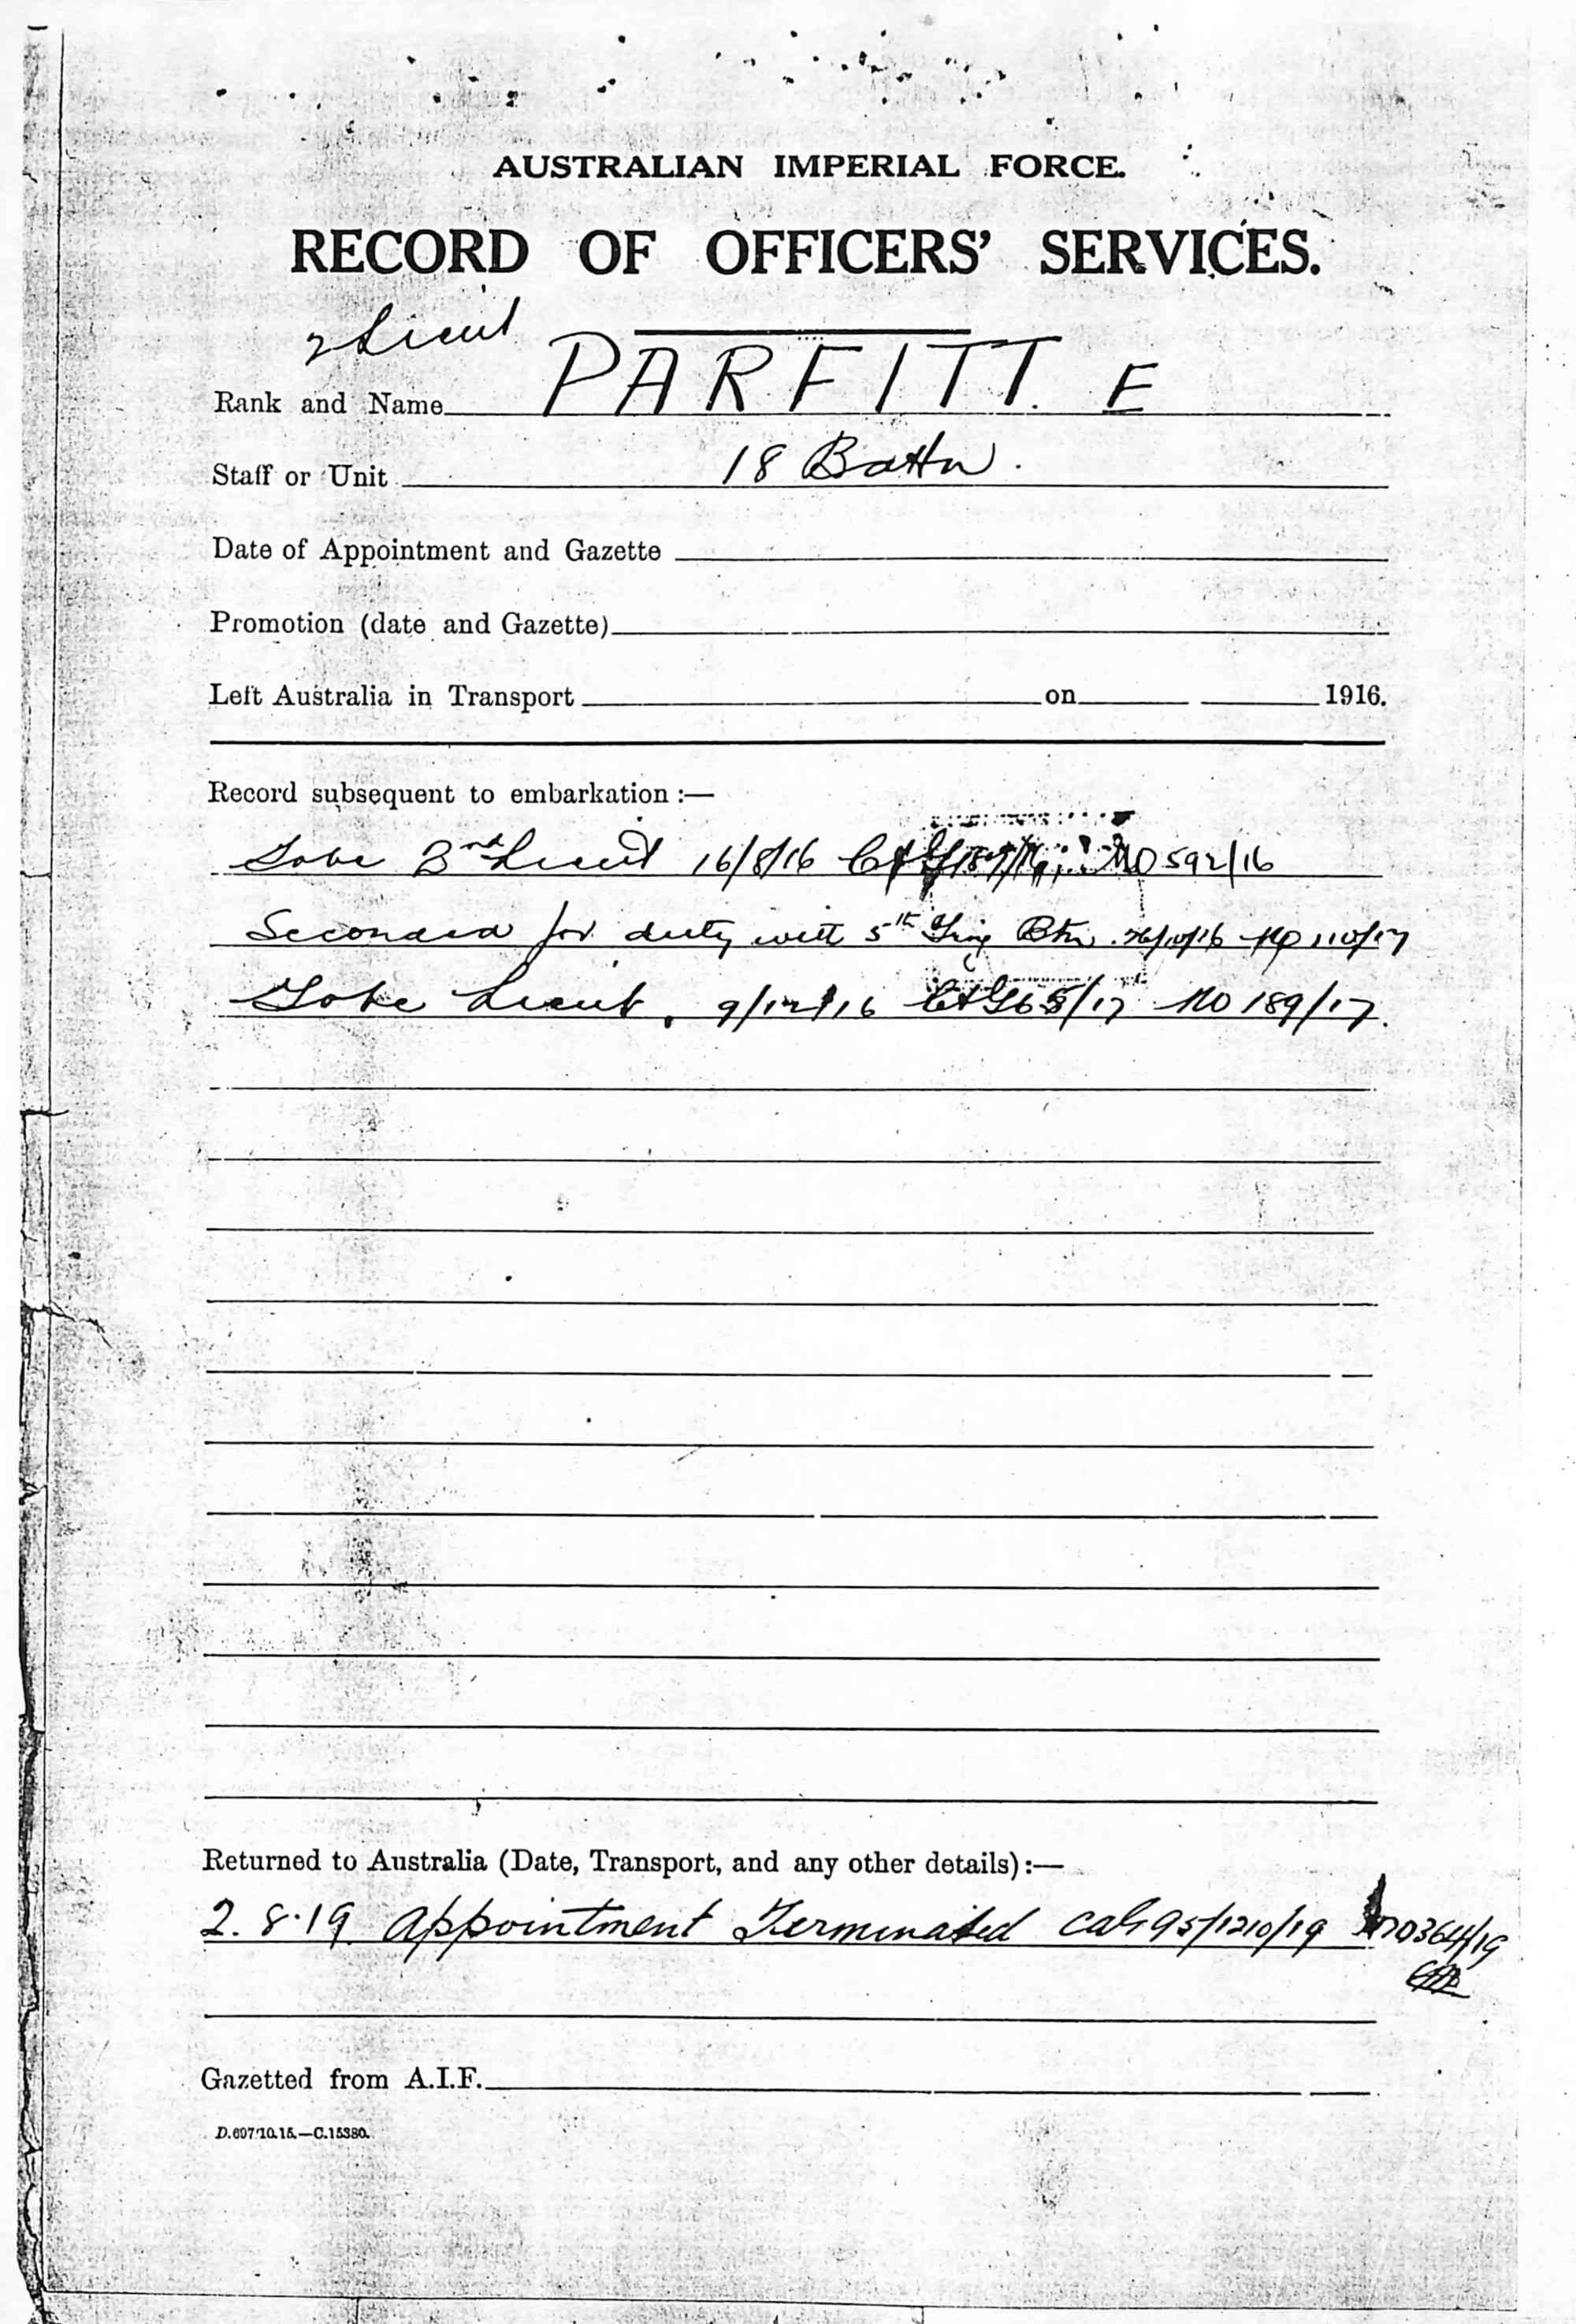 AUSTRALIAN IMPERIAL FORCE.
RECORD OF OFFICERS' SERVICES.
2 Lieut
Rank and Name PARFITT. E
Staff or Unit 18 Battn.
Date of Appointment and Gazette
Promotion (date and Gazette)
Left Australia in Transport on 1916.
Record subsequent to embarkation :—
To be 2nd Lieut 16/8/16 MO 592/16
Seconded for duty with 5th Trng Btn. 26/10/16 MO 110/17
To be Lieut, 9/12/16 CAG 65/17 MO 189/17.
Returned to Australia (Date, Transport, and any other details) :—
2.8.19 Appointment Terminated CAG 95/1210/19 MO364/19
Gazetted from A.I.F.
D.697/10.15.—C.15380.